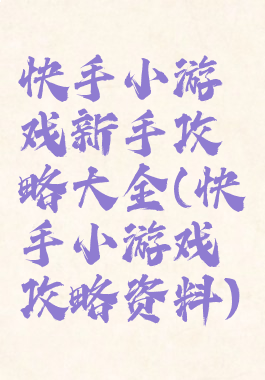 快手小游
戏新手攻
略大全(快
手小游戏
攻略资料)